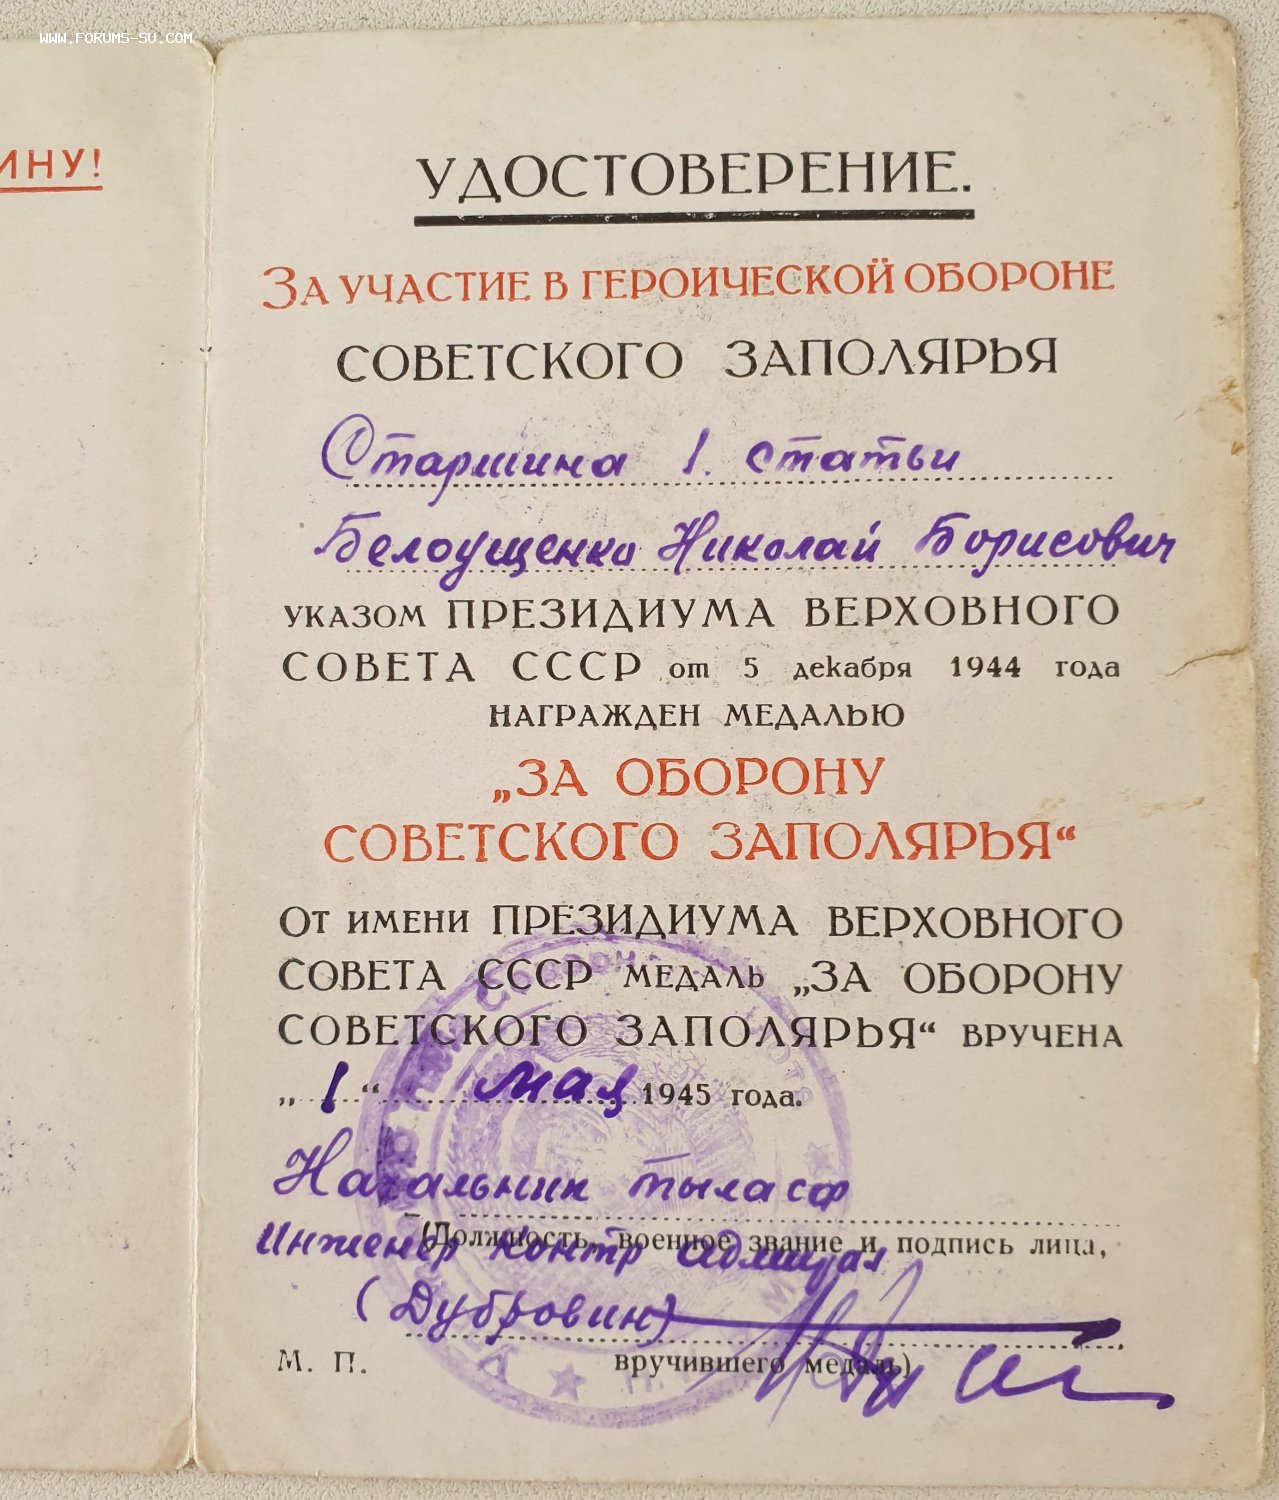 WWW.FORUMS-SU.COM
ИНУ!
УДОСТОВЕРЕНИЕ.
ЗА УЧАСТИЕ В ГЕРОИЧЕСКОЙ ОБОРОНЕ
СОВЕТСКОГО ЗАПОЛЯРЬЯ
Старшина 1. статьи
Белоущенко Николай Борисович
УКАЗОМ ПРЕЗИДИУМА ВЕРХОВНОГО
СОВЕТА СССР от 5 декабря 1944 года
НАГРАЖДЕН МЕДАЛЬЮ
„ЗА ОБОРОНУ
СОВЕТСКОГО ЗАПОЛЯРЬЯ“
ОТ ИМЕНИ ПРЕЗИДИУМА ВЕРХОВНОГО
СОВЕТА СССР МЕДАЛЬ „ЗА ОБОРОНУ
СОВЕТСКОГО ЗАПОЛЯРЬЯ“ ВРУЧЕНА
„1“ мая 1945 года.
Начальник тыла сф
(Должность, военное звание и подпись лица,
Инженер Контр адмирал
(Дубровин)
М. П. вручившего медаль)